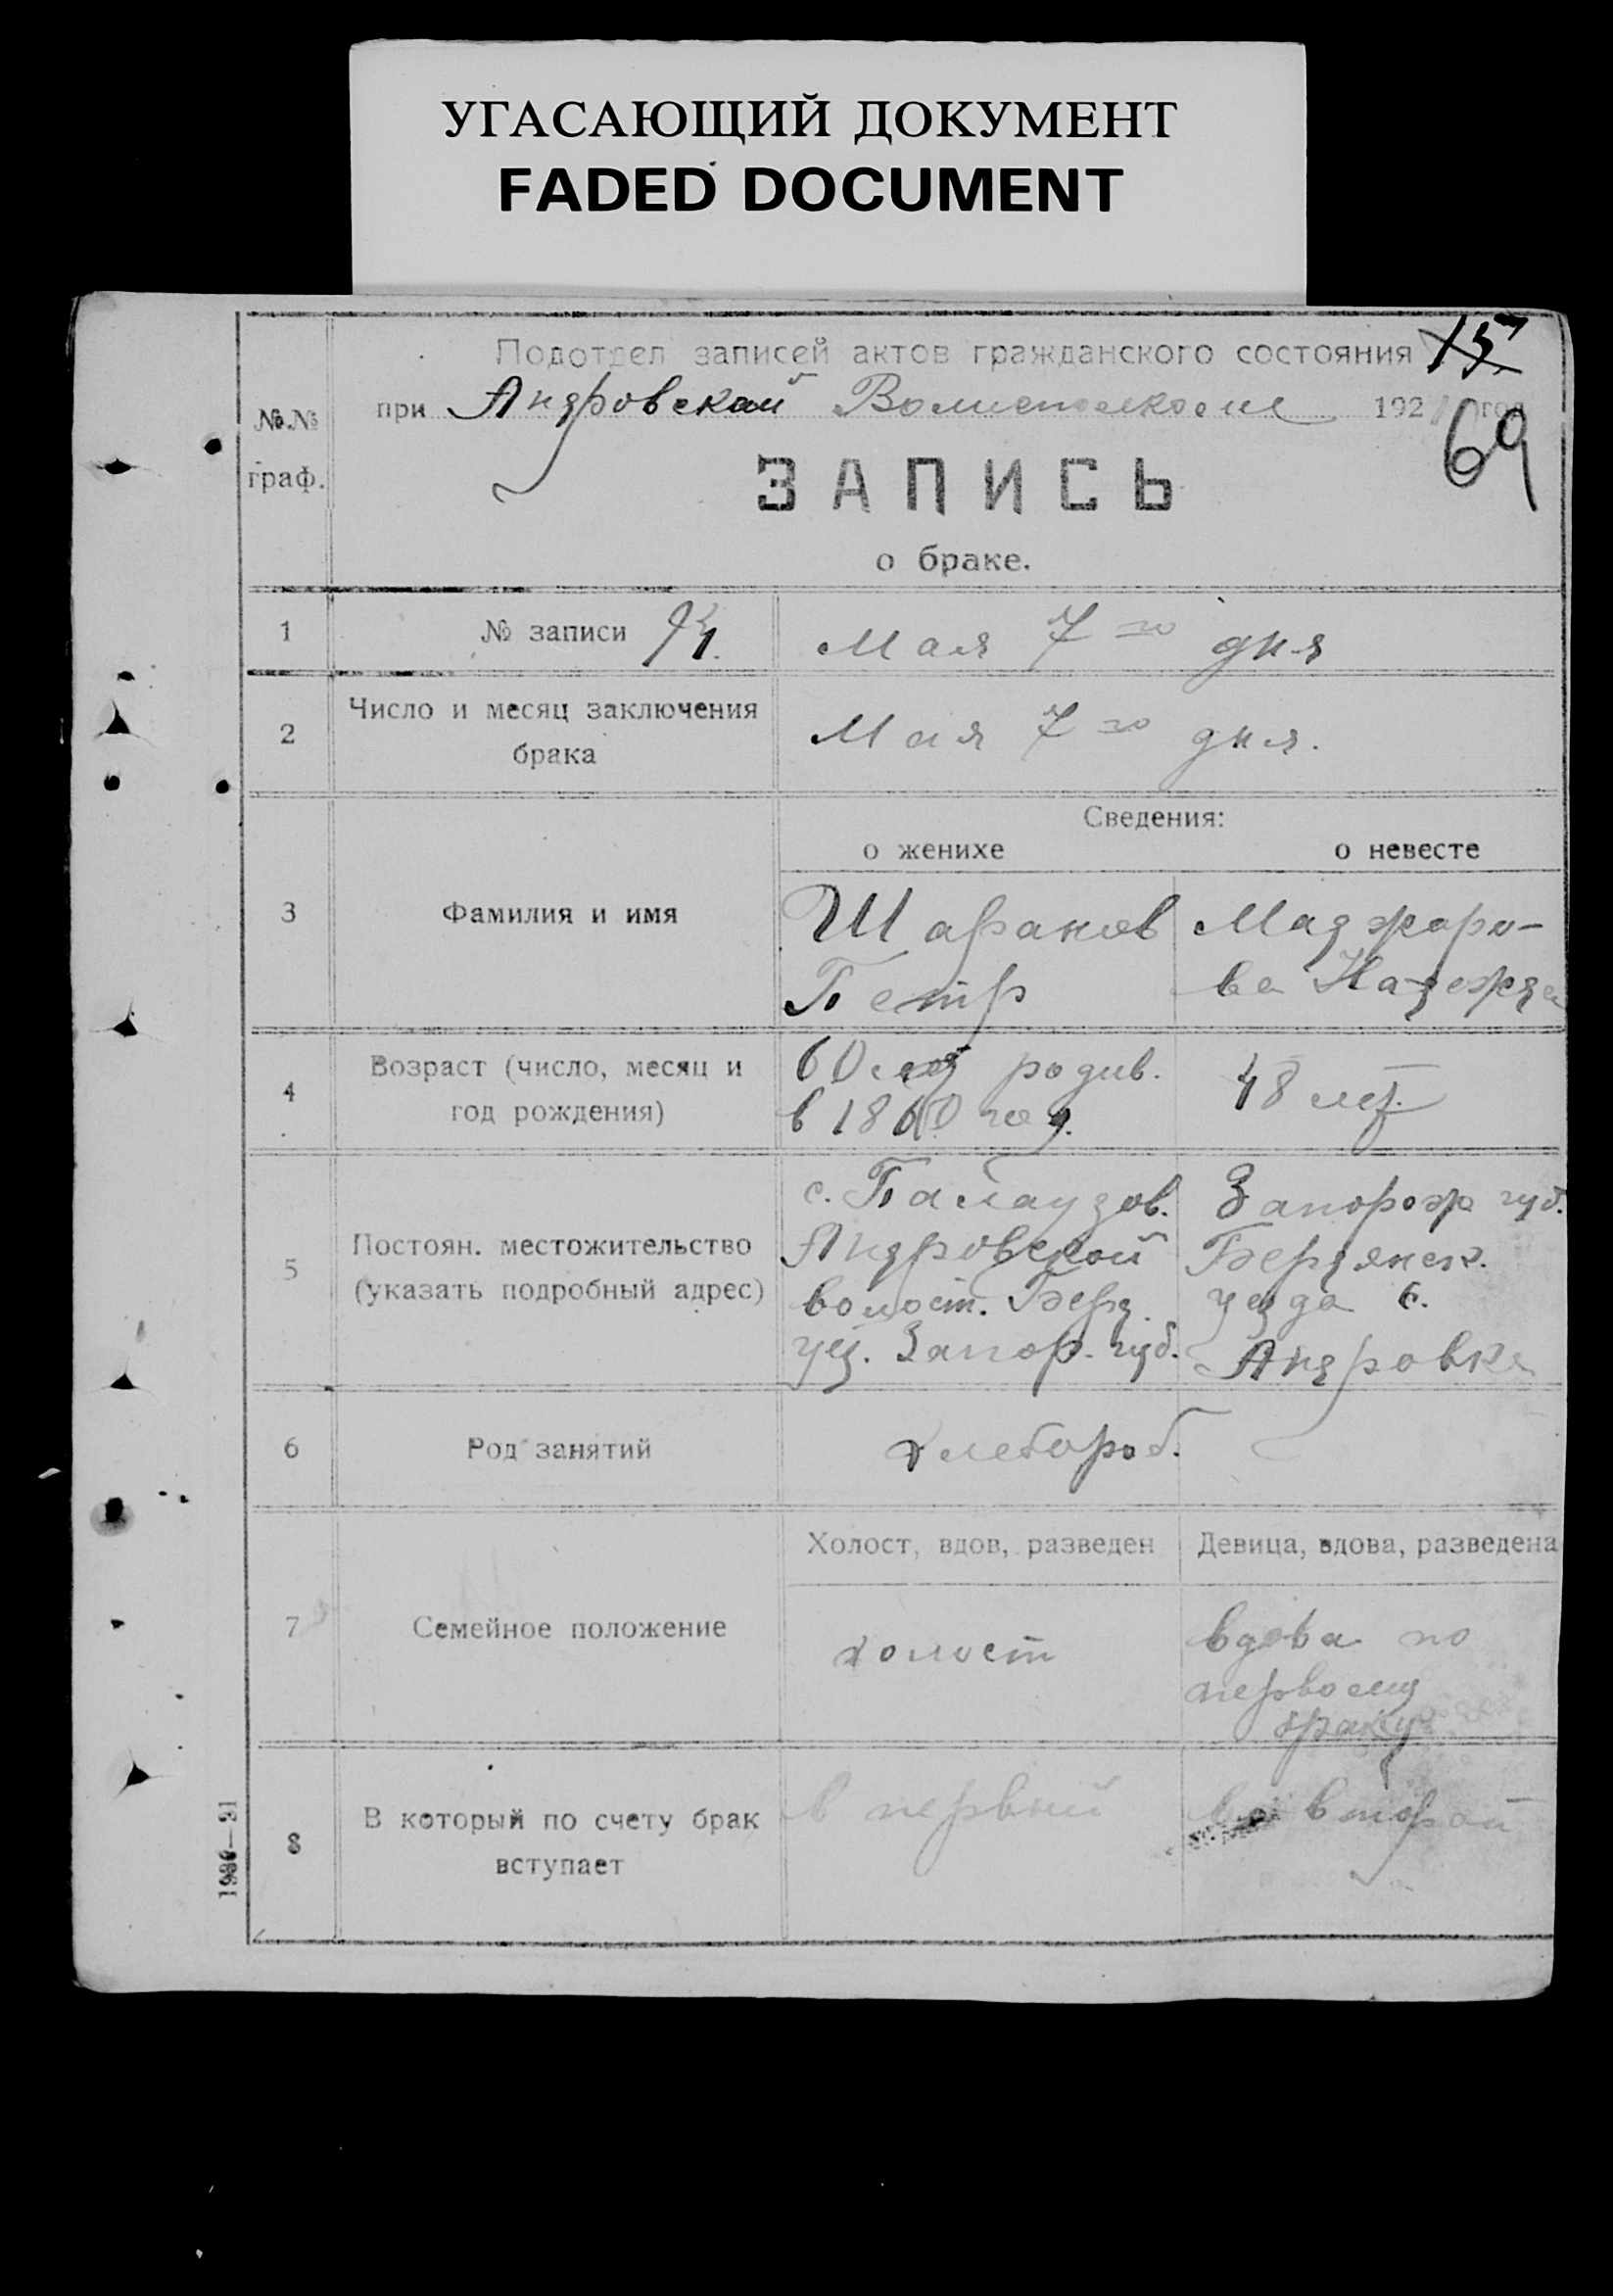 УГАСАЮЩИЙ ДОКУМЕНТ
FADED DOCUMENT
Подотдел записей актов гражданского состояния 15
при Андровской 192 год
69
№№
граф.
ЗАПИСЬ
о браке.
1 № записи Мая 7го дня
2 Число и месяц заключения
брака
Мая 7го дня.
Сведения:
о женихе о невесте
3 Фамилия и имя
Шафанов Маджаро-
Петр ва Надежда
4 Возраст (число, месяц и
год рождения)
60 лет родив. 48 лет
в 1860 год.
5 Постоян. местожительство
(указать подробный адрес)
с. Палаузов. Запорож губ.
Андровской Бердянск.
волост. Берд. уезда с.
уез. Запор. губ. Андровка
6 Род занятий хлебороб.
Холост, вдов, разведен Девица, вдова, разведена
7 Семейное положение
холост вдова по
первому
браку
8 В который по счету брак
вступает
в первый во второй